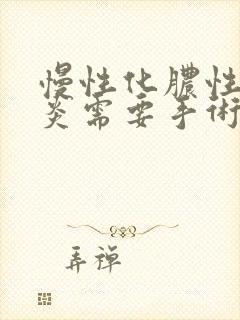 慢性化膿性
炎需要手術
弄禅